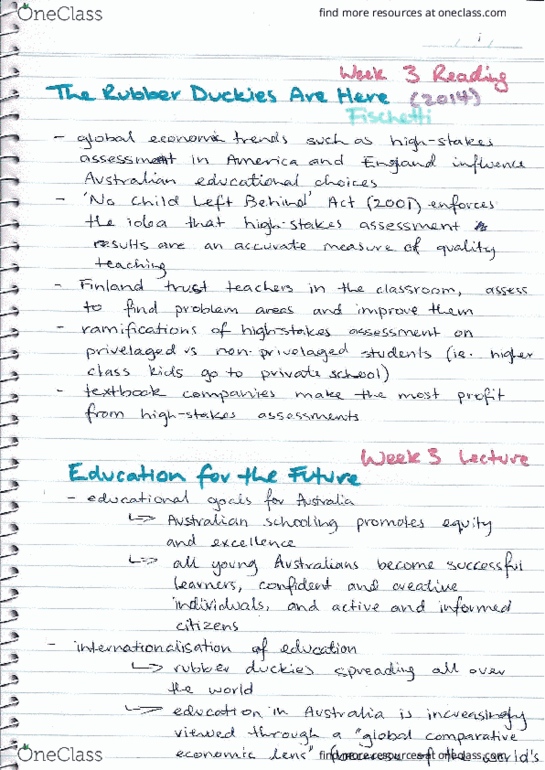 OneClass
find more resources at oneclass.com
Week 3 Reading
The Rubber Duckies Are Here (2014)
Fischetti
- global economic trends such as high-stakes
assessment in America and England influence
Australian educational choices
- 'No Child Left Behind' Act (2001) enforces
the idea that high-stakes assessment
results are an accurate measure of quality
teaching
- Finland trust teachers in the classroom, assess
to find problem areas and improve them
- ramifications of high-stakes assessment on
privelaged vs non-privelaged students (ie. higher
class kids go to private school)
- textbook companies make the most profit
from high-stakes assessments
Week 3 Lecture
Education for the Future
- educational goals for Australia
↳ Australian schooling promotes equity
and excellence
↳ all young Australians become successful
learners, confident and creative
individuals, and active and informed
citizens
- internationalisation of education
↳ rubber duckies spreading all over
the world
↳ education in Australia is increasingly
viewed through a "global comparative
economic lens"
OneClass
find more resources at oneclass.com